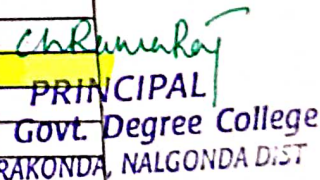 PRINCIPAL
Govt. Degree College
RAKONDA, NALGONDA DIST